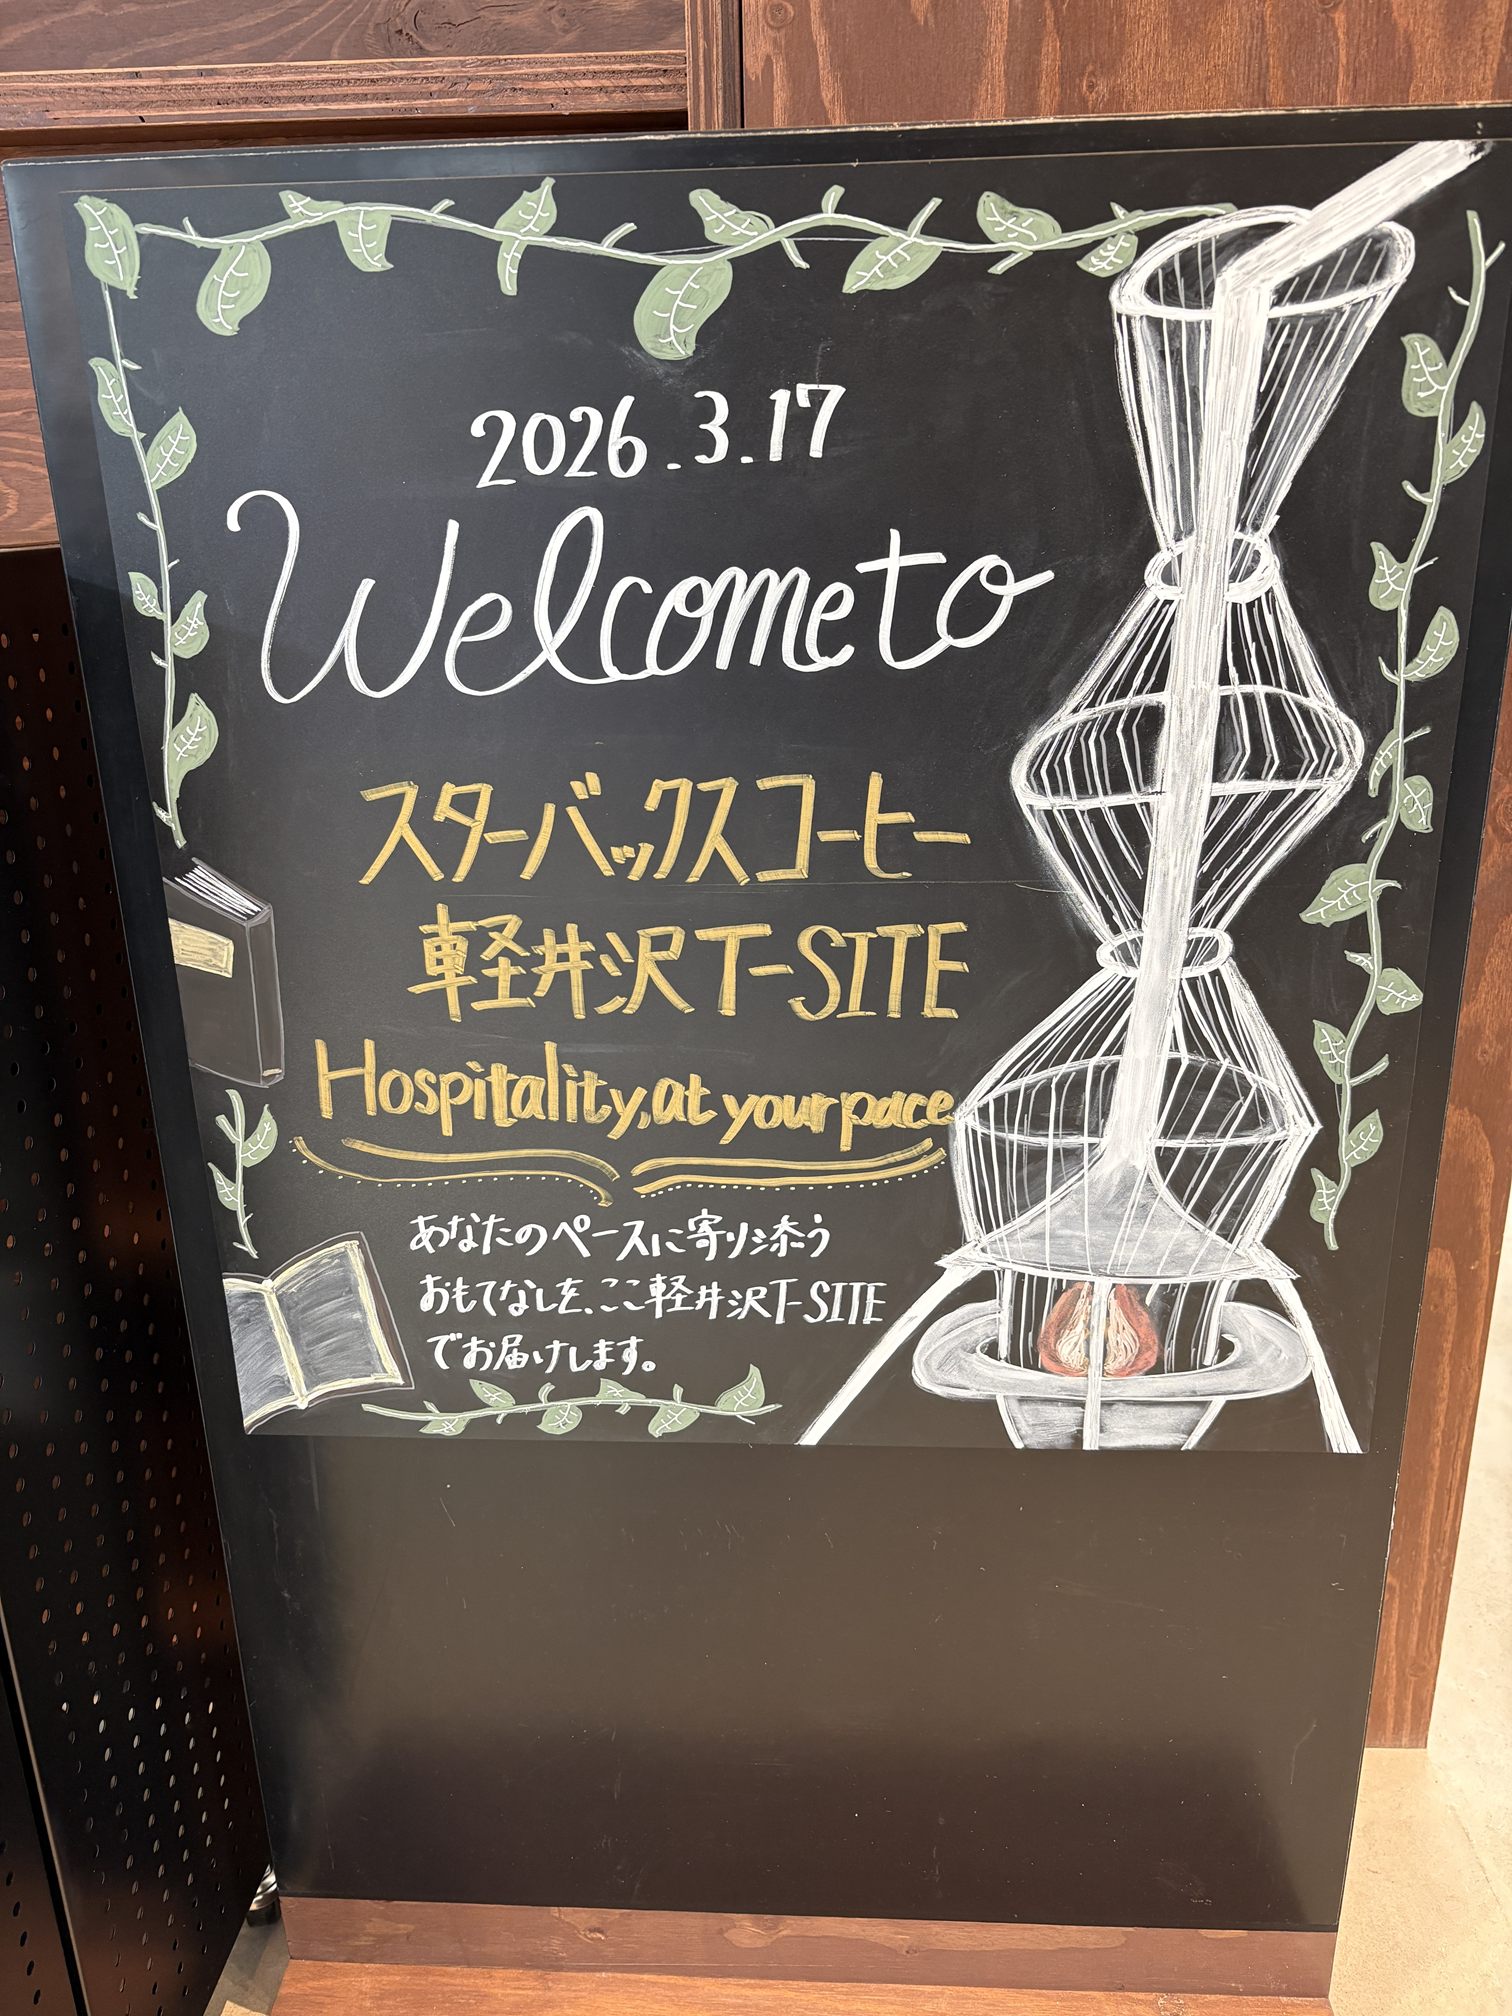 2026.3.17
Welcome to
スターバックスコーヒー
軽井沢 T-SITE
Hospitality, at your pace
あなたのペースに寄り添う
おもてなしを、ここ軽井沢T-SITE
でお届けします。